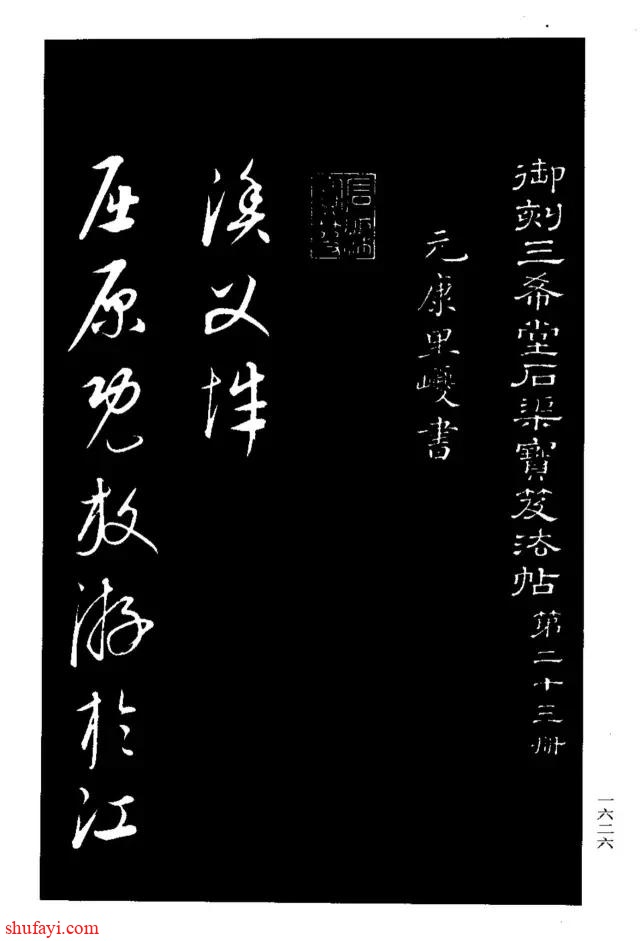 御刻三希堂石渠寶笈法帖第二十三册
元康里巎書
漁父辭
屈原既放游於江
一六二六
shufayi.com